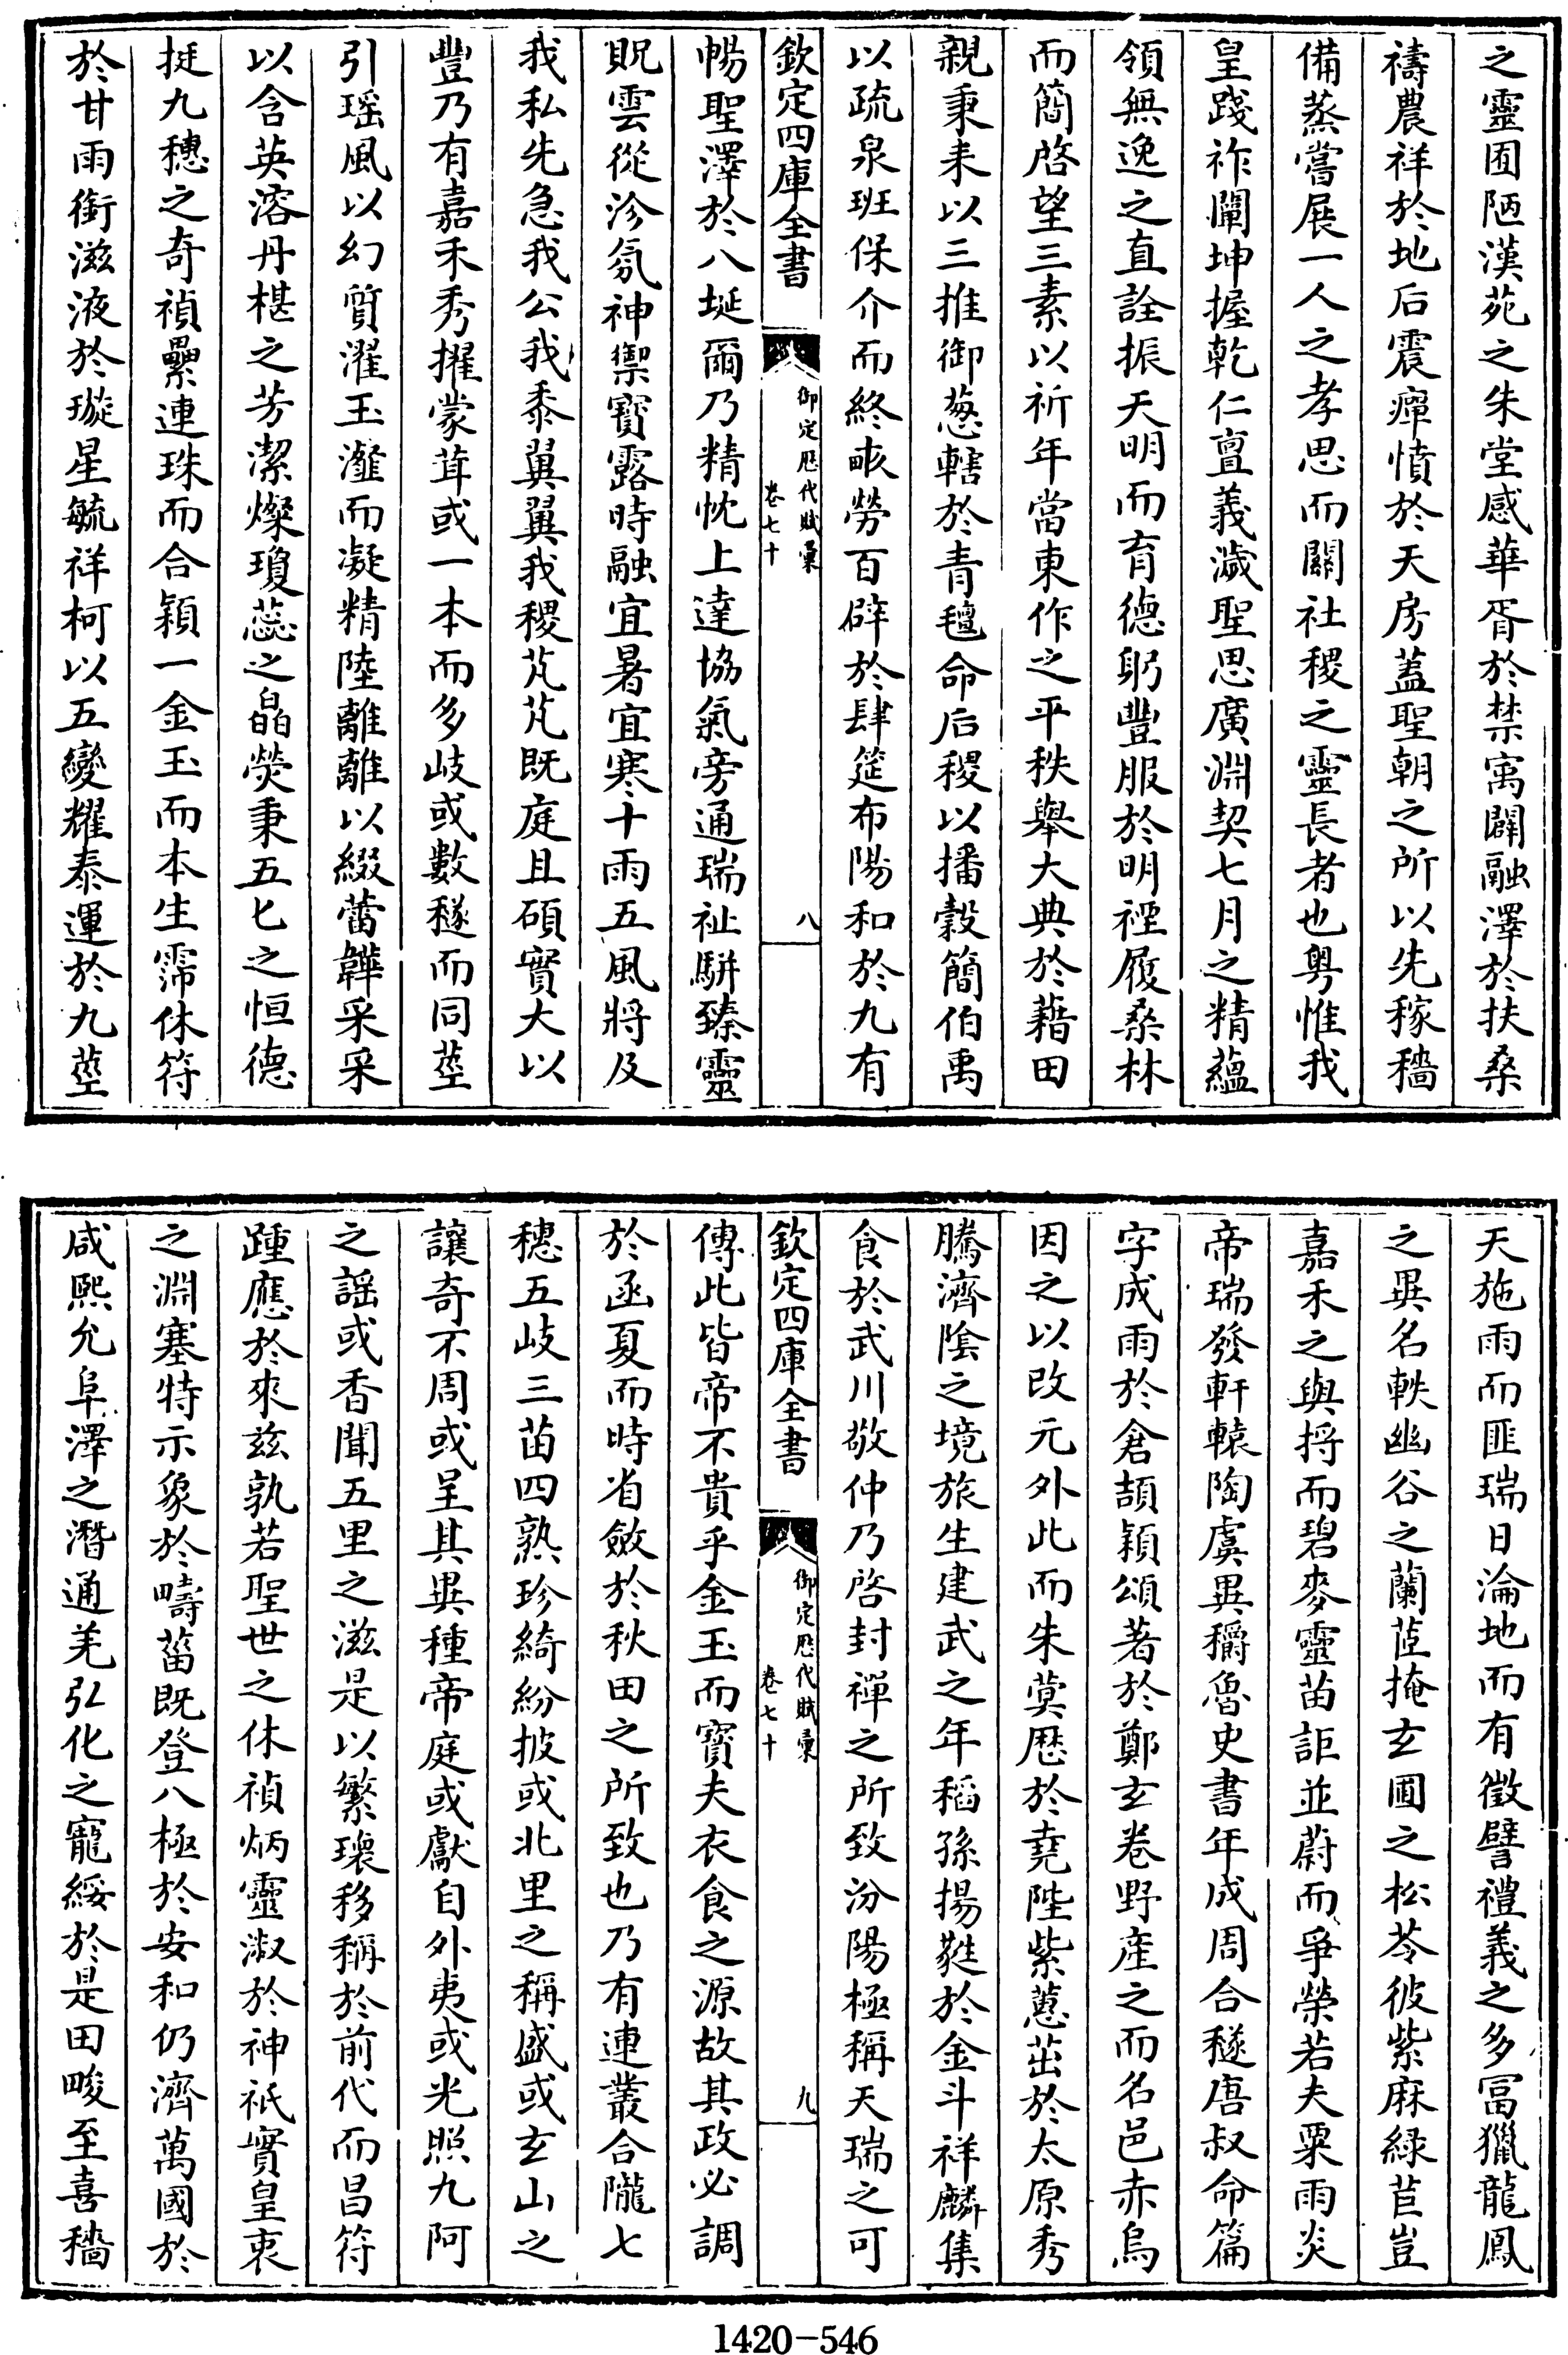 之靈囿陋漢苑之朱堂感華胥於禁㝢闢融澤於扶桑
禱農祥於地后震癉憤於天房蓋聖朝之所以先稼穡
備蒸嘗展一人之孝思而關社稷之靈長者也粤惟我
皇踐祚闡坤握乾仁亶義濊聖思廣淵契七月之精蘊
領無逸之直詮振天明而育德躬豐服於明禋履桑林
而簡啓望三素以祈年當東作之平秩舉大典於藉田
親秉耒以三推御葱轄於青壇命后稷以播穀簡伯禹
以疏泉班保介而終畝勞百辟於肆筵布陽和於九有
欽定四庫全書
御定歷代賦彙
卷七十
八
暢聖澤於八埏爾乃精忱上達協氣旁通瑞祉駢臻靈
貺雲從沴氛神禦寳露時融宜暑宜寒十雨五風將及
我私先急我公我黍翼翼我稷芃芃既庭且碩實大以
豐乃有嘉禾秀擢蒙茸或一本而多岐或數穟而同莖
引瑶風以幻質濯玉瀣而凝精陸離離以綴蕾韡采采
以含英溶丹椹之芳潔燦瓊蕊之晶熒秉五匕之恒德
挺九穗之奇禎纍連珠而合穎一金玉而本生霈休符
於甘雨銜滋液於璇星毓祥柯以五變耀泰運於九莖
天施雨而匪瑞日淪地而有徵譬禮義之多冨獵龍鳳
之異名軼幽谷之蘭茝掩玄圃之松苓彼紫麻緑苣豈
嘉禾之與捋而碧麥靈苗詎並蔚而爭榮若夫粟雨炎
帝瑞發軒轅陶虞異穱魯史書年成周合穟唐叔命篇
字成雨於倉頡穎頌著於鄭玄卷野産之而名邑赤烏
因之以改元外此而朱蓂歴於堯陛紫蒽茁於太原秀
騰濟隂之境旅生建武之年稻孫揚蕤於金斗祥麟集
食於武川敬仲乃啓封禪之所致汾陽極稱天瑞之可
欽定四庫全書
御定歷代賦彙
卷七十
九
傳此皆帝不貴乎金玉而寳夫衣食之源故其政必調
於函夏而時省斂於秋田之所致也乃有連叢合隴七
穗五岐三苗四熟珍綺紛披或北里之稱盛或玄山之
讓奇不周或呈其異種帝庭或獻自外夷或光照九阿
之謡或香聞五里之滋是以繁瓌移稱於前代而昌符
踵應於來兹孰若聖世之休禎炳靈淑於神祇實皇衷
之淵塞特示象於疇菑既登八極於安和仍濟萬國於
咸熙允阜澤之潛通羌弘化之寵綏於是田畯至喜穡
1420-546